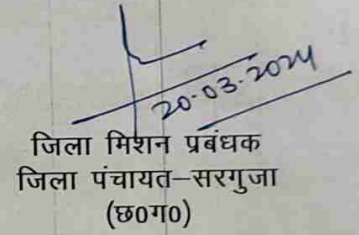 20.03.2024
जिला मिशन प्रबंधक
जिला पंचायत–सरगुजा
(छ0ग0)